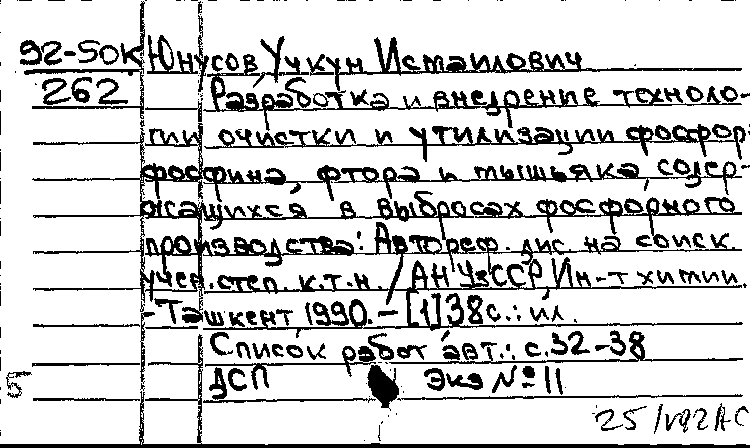 92-5OK Юнусов, Учкун Исмаилович
262 Разработка и внедрение техноло-
гии очистки и утилизации фосфора
фосфина, фтора и мышьяка, содер-
жащихся в выбросах фосфорного
производства: Автореф. дис. на соиск.
учен. степ. к.т.н. / АН УзССР, Ин-т химии.
-Ташкент 1990. – [1] 38 с.: ил.
Список работ авт.: с. 32-38
ДСП Экз № 11
5
25/